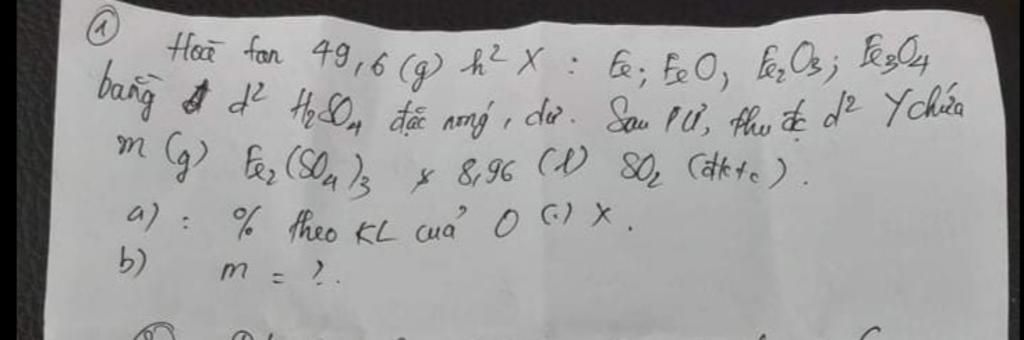 ① Hoà tan 49,6 (g) h² X : Fe; FeO, Fe₂O₃; Fe₃O₄
bằng d² H₂SO₄ đặc nóng, dư. Sau PƯ, thu đc d² Y chứa
m (g) Fe₂(SO₄)₃ & 8,96 (l) SO₂ (đktc).
a) : % theo KL của O (.) X.
b) m = ?.